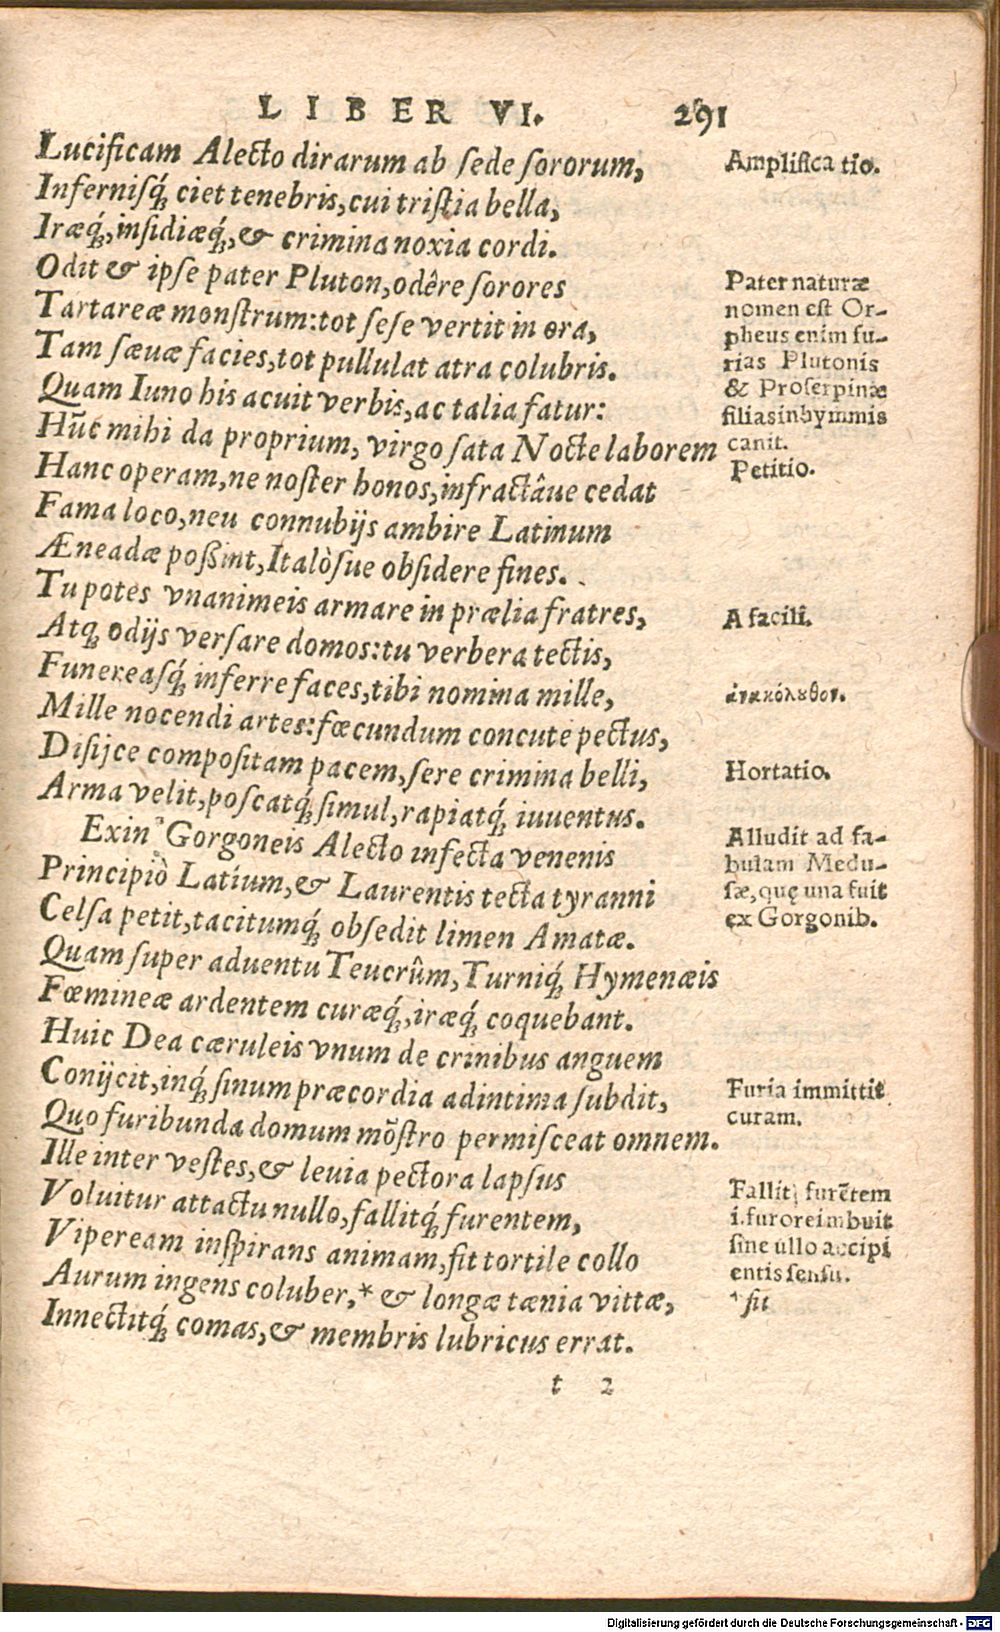 LIBER VI. 291
Lucificam Alecto dirarum ab sede sororum,
Infernisq́; ciet tenebris, cui tristia bella,
Iræq́;, insidiæq́;, & crimina noxia cordi.
Odit & ipse pater Pluton, odêre sorores
Tartareæ monstrum: tot sese vertit in ora,
Tam sæuæ facies, tot pullulat atra colubris.
Quam Iuno his acuit verbis, ac talia fatur:
Hūc mihi da proprium, virgo sata Nocte laborem
Hanc operam, ne noster honos, infractâue cedat
Fama loco, neu connubijs ambire Latinum
Æneadæ possint, Italòsue obsidere fines.
Tu potes vnanimeis armare in prælia fratres,
Atq; odijs versare domos: tu verbera tectis,
Funereasq́; inferre faces, tibi nomina mille,
Mille nocendi artes: fœcundum concute pectus,
Disijce compositam pacem, sere crimina belli,
Arma velit, poscatq́; simul, rapiatq́; iuuentus.
Exin Gorgoneis Alecto infecta venenis
Principiò Latium, & Laurentis tecta tyranni
Celsa petit, tacitumq́; obsedit limen Amatæ.
Quam super aduentu Teucrûm, Turniq́; Hymenæis
Fœmineæ ardentem curæq́;, iræq́; coquebant.
Huic Dea cæruleis vnum de crinibus anguem
Conijcit, inq́; sinum præcordia ad intima subdit,
Quo furibunda domum mōstro permisceat omnem.
Ille inter vestes, & leuia pectora lapsus
Voluitur attactu nullo, fallitq́; furentem,
Vipeream inspirans animam, fit tortile collo
Aurum ingens coluber,* & longæ tænia vittæ,
Innectitq́; comas, & membris lubricus errat.
t 2
Amplifica tio.
Pater naturæ
nomen est Or-
pheus enim fu-
rias Plutonis
& Proserpinæ
filias in hymnis
canit.
Petitio.
A facili.
ἀνακόλουθον.
Hortatio.
Alludit ad fa-
bulam Medu-
sæ, quę una fuit
ex Gorgonib.
Furia immittit
curam.
Fallit furētem
i. furore imbuit
sine ullo accipi
entis sensu.
* fit
Digitalisierung gefördert durch die Deutsche Forschungsgemeinschaft - DFG